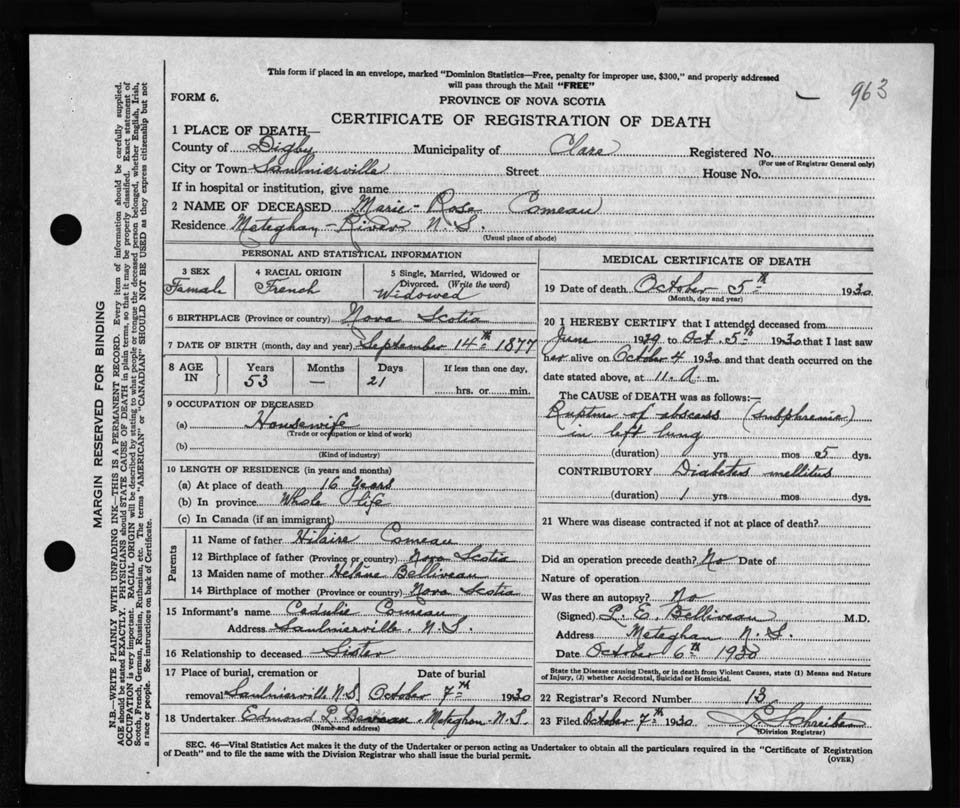 This form if placed in an envelope, marked "Dominion Statistics—Free, penalty for improper use, $300," and properly addressed
will pass through the Mail "FREE"
963
FORM 6.
PROVINCE OF NOVA SCOTIA
CERTIFICATE OF REGISTRATION OF DEATH
1 PLACE OF DEATH—
County of Digby Municipality of Clare Registered No.
(For use of Registrar General only)
City or Town Saulnierville Street House No.
If in hospital or institution, give name
2 NAME OF DECEASED Marie-Rose Comeau
Residence Meteghan-River N.S.
(Usual place of abode)
PERSONAL AND STATISTICAL INFORMATION
3 SEX
Famale
4 RACIAL ORIGIN
French
5 Single, Married, Widowed or
Divorced. (Write the word)
Widowed
6 BIRTHPLACE (Province or country) Nova Scotia
7 DATE OF BIRTH (month, day and year) September 14th 1877
8 AGE IN
Years Months Days If less than one day,
53 — 21 hrs. or min.
9 OCCUPATION OF DECEASED
(a) Housewife
(Trade or occupation or kind of work)
(b)
(Kind of industry)
10 LENGTH OF RESIDENCE (in years and months)
(a) At place of death 16 Years
(b) In province Whole life
(c) In Canada (if an immigrant)
Parents
11 Name of father Hilaire Comeau
12 Birthplace of father (Province or country) Nova Scotia
13 Maiden name of mother Helène Belliveau
14 Birthplace of mother (Province or country) Nova Scotia
15 Informant's name Cedulie Comeau
Address Saulnierville. N.S.
16 Relationship to deceased Sister
17 Place of burial, cremation or Date of burial
removal Saulnierville N.S. October 7th 1930
18 Undertaker Edmond P. Meteghan N.S.
(Name and address)
MEDICAL CERTIFICATE OF DEATH
19 Date of death October 5th 1930
(Month, day and year)
20 I HEREBY CERTIFY that I attended deceased from
June 1929 to Oct. 5th 1930 that I last saw
her alive on October 4 1930 and that death occurred on the
date stated above, at 11. A. m.
The CAUSE of DEATH was as follows:—
Rupture of abscess (subphrenic)
in left lung
(duration) yrs mos 5 dys.
CONTRIBUTORY Diabetes mellitus
(duration) 1 yrs mos dys.
21 Where was disease contracted if not at place of death?
Did an operation precede death? No Date of
Nature of operation
Was there an autopsy? No
(Signed) P. E. Belliveau M.D.
Address Meteghan N.S.
Date October 6th 1930
State the Disease causing Death, or in death from Violent Causes, state (1) Means and Nature
of Injury, (2) whether Accidental, Suicidal or Homicidal.
22 Registrar's Record Number 13
23 Filed October 7th 1930 Schreiber
(Division Registrar)
SEC. 46—Vital Statistics Act makes it the duty of the Undertaker or person acting as Undertaker to obtain all the particulars required in the "Certificate of Registration
of Death" and to file the same with the Division Registrar who shall issue the burial permit.
(OVER)
MARGIN RESERVED FOR BINDING
N.B.—WRITE PLAINLY WITH UNFADING INK—THIS IS A PERMANENT RECORD. Every item of information should be carefully supplied.
AGE should be stated EXACTLY. PHYSICIANS should STATE CAUSE OF DEATH in plain terms, so that it may be properly classified. Exact statement of
OCCUPATION is very important. RACIAL ORIGIN will be described by stating to what people or tongue the deceased person belonged, whether English, Irish,
Scotch, French, German, Russian, Ruthenian, etc. The terms "AMERICAN" or "CANADIAN" SHOULD NOT BE USED as they express citizenship but not
a race or people. See instructions on back of Certificate.